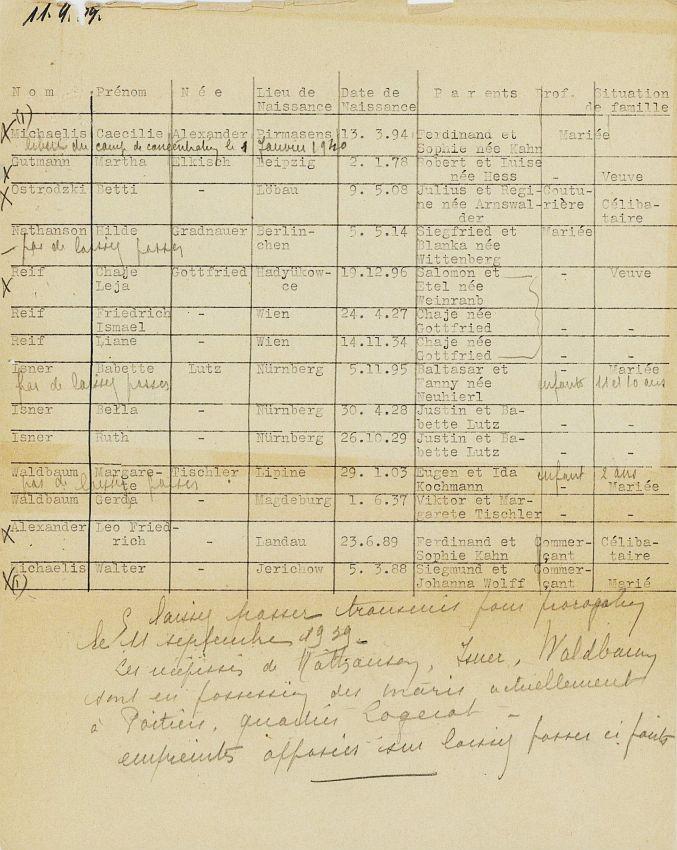 11.9.39.
Nom Prénom Née Lieu de Date de Parents Prof. Situation
Naissance Naissance de famille
(1)
Michaelis Caecilie Alexander Pirmasens 13. 3.94 Ferdinand et Mariée
Sophie née Kahn
du camp de concentration le 1 Janvier 1940
Gutmann Martha Elkisch Leipzig 2. 1.78 Robert et Luise
née Hess - Veuve
Ostrodzki Betti - Löbau 9. 5.08 Julius et Regi- Coutu-
ne née Arnswal- rière Céliba-
der taire
Nathanson Hilde Gradnauer Berlin- 5. 5.14 Siegfried et Mariée
chen Blanka née
- pas de laissez passer
Wittenberg
Reif Chaje Gottfried Hadyükow- 19.12.96 Salomon et - Veuve
Leja ce Etel née
Weinranb
Reif Friedrich - Wien 24. 4.27 Chaje née
Ismael Gottfried - -
Reif Liane - Wien 14.11.34 Chaje née
Gottfried - -
Isner Babette Lutz Nürnberg 5.11.95 Baltasar et - Mariée
pas de laissez passer Fanny née enfants 11 et 10 ans
Neuhierl
Isner Bella - Nürnberg 30. 4.28 Justin et Ba-
bette Lutz - -
Isner Ruth - Nürnberg 26.10.29 Justin et Ba-
bette Lutz - -
Waldbaum Margare- Tischler Lipine 29. 1.03 Eugen et Ida enfant 2 ans
te Kochmann - Mariée
pas de laissez passer
Waldbaum Gerda - Magdeburg 1. 6.37 Viktor et Mar-
garete Tischler - -
Alexander Leo Fried-
rich - Landau 23.6.89 Ferdinand et Commer- Céliba-
Sophie Kahn çant taire
Michaelis Walter - Jerichow 5. 3.88 Siegmund et Commer-
(1) Johanna Wolff çant Marié
laissez passer transmis pour
le 11 septembre 1939.
Les récépissés de Nathanson, Isner, Waldbaum
sont en possession des maris actuellement
à Poitiers, quartier
empreintes apposées sur laissez passer ci joints